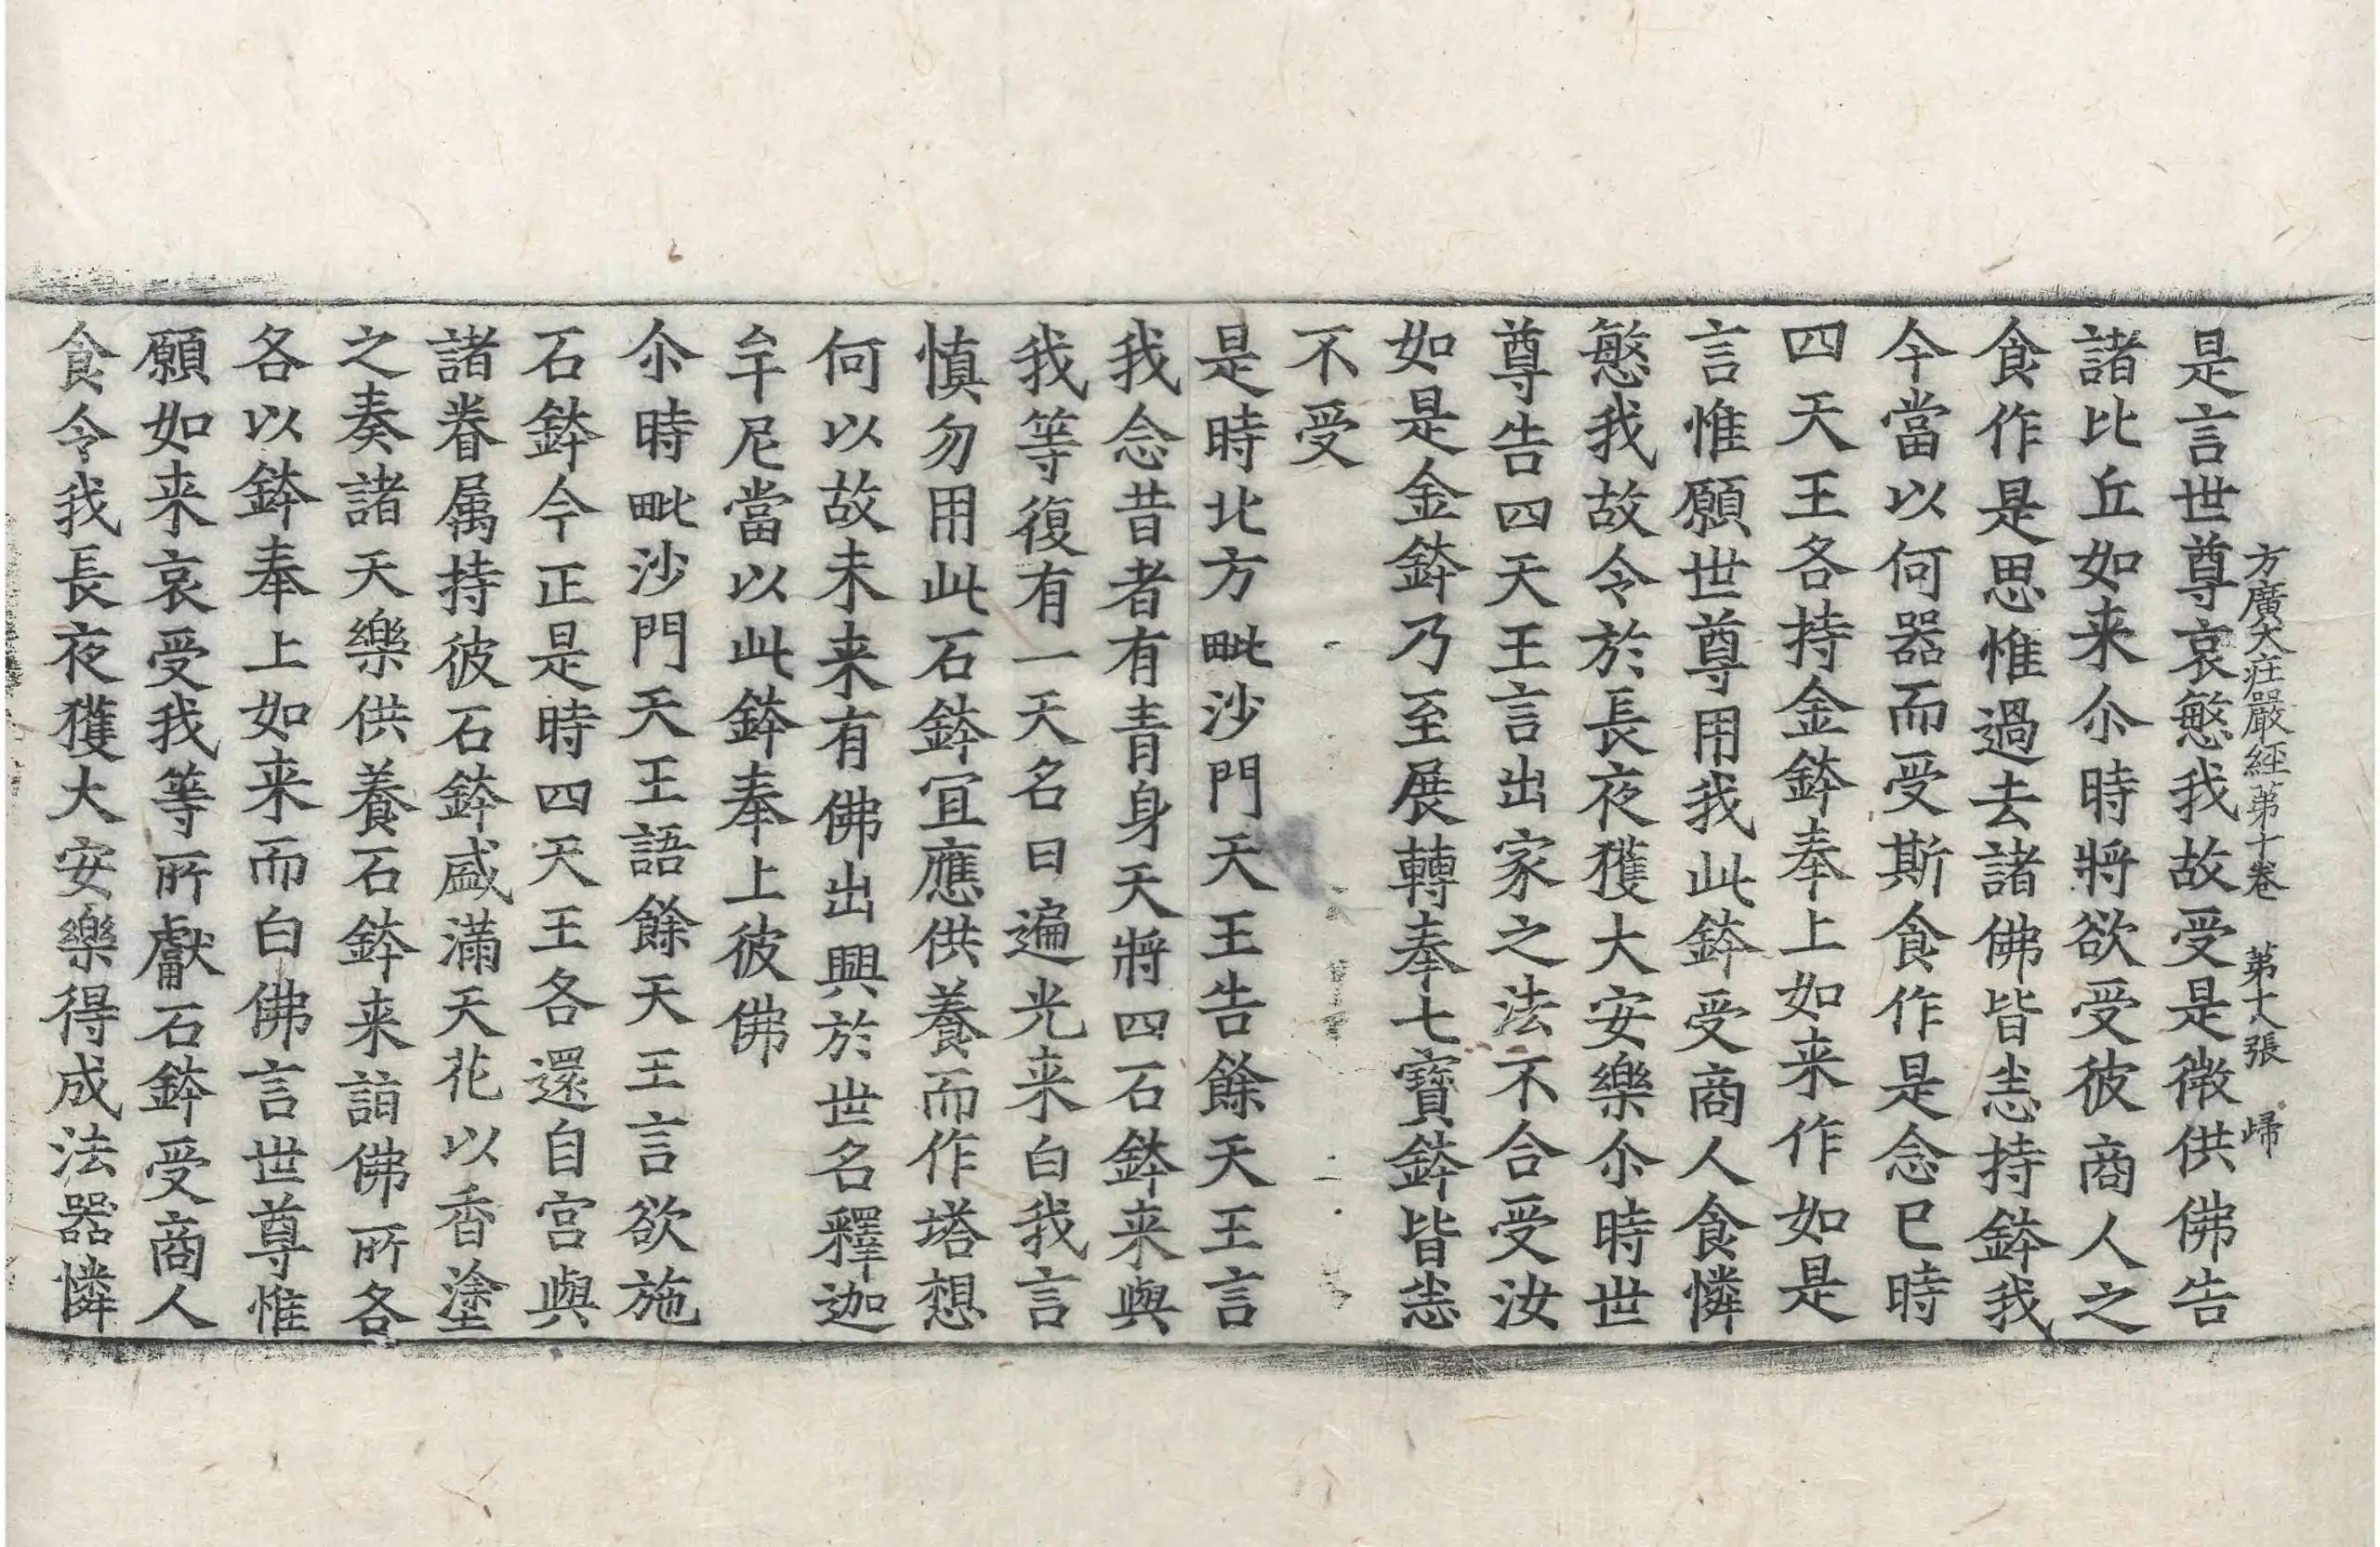 方廣大庄嚴經第十卷 第六張 歸
是言世尊哀慜我故受是微供佛告
諸比丘如来尒時將欲受彼商人之
食作是思惟過去諸佛皆悉持鉢我
今當以何器而受斯食作是念已時
四天王各持金鉢奉上如来作如是
言惟願世尊用我此鉢受商人食憐
慜我故令於長夜獲大安樂尒時世
尊告四天王言出家之法不合受汝
如是金鉢乃至展轉奉七寶鉢皆悉
不受
是時北方毗沙門天王告餘天王言
我念昔者有青身天將四石鉢来與
我等復有一天名曰遍光来白我言
慎勿用此石鉢宜應供養而作塔想
何以故未来有佛出興於世名釋迦
牟尼當以此鉢奉上彼佛
尒時毗沙門天王語餘天王言欲施
石鉢今正是時四天王各還自宮與
諸眷属持彼石鉢盛滿天花以香塗
之奏諸天樂供養石鉢来詣佛所各
各以鉢奉上如来而白佛言世尊惟
願如来哀受我等所獻石鉢受商人
食令我長夜獲大安樂得成法器憐